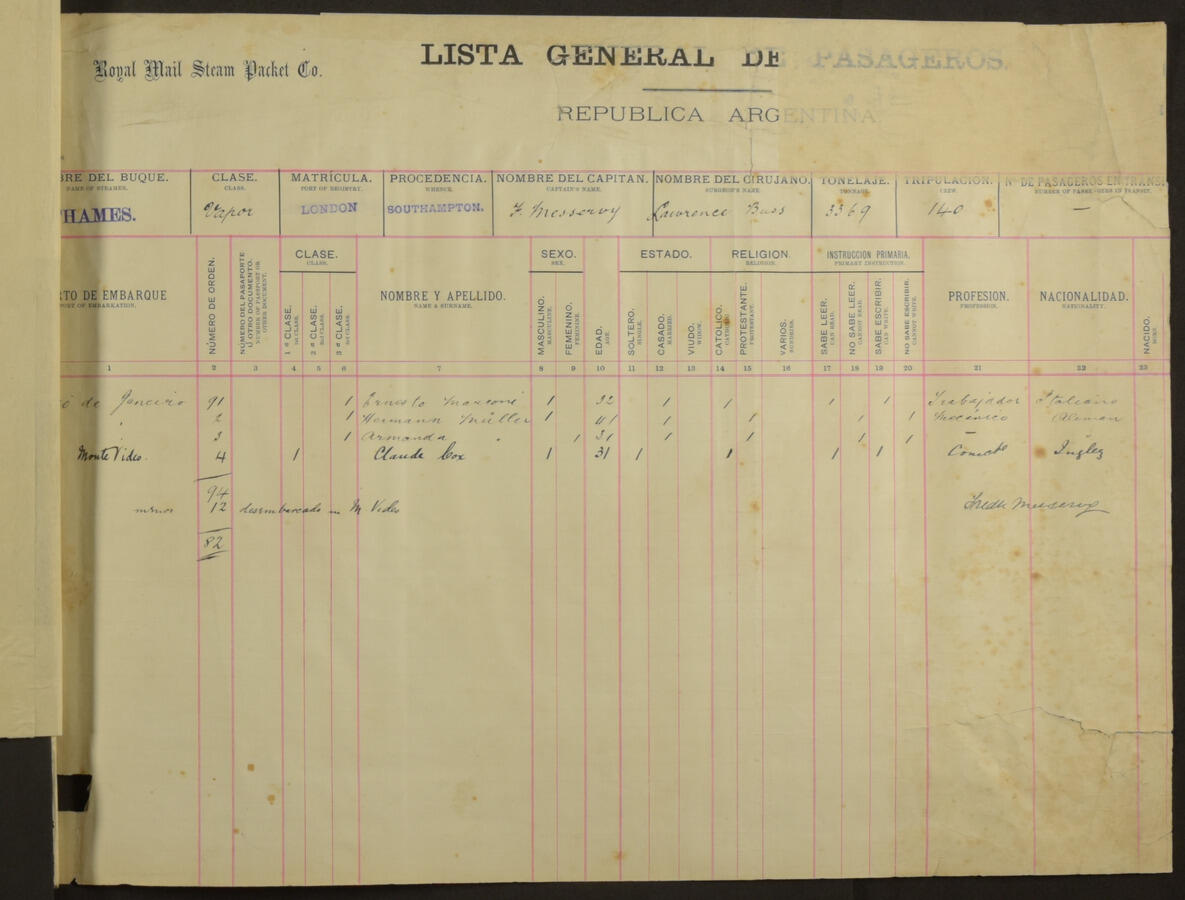 Royal Mail Steam Packet Co.
LISTA GENERAL DE PASAGEROS.
REPUBLICA ARGENTINA
BRE DEL BUQUE. CLASE. MATRÍCULA. PROCEDENCIA. NOMBRE DEL CAPITAN. NOMBRE DEL CIRUJANO. TONELAJE. TRIPULACION. Nº DE PASAGEROS EN TRANS.
NAME OF STEAMER. CLASS. PORT OF REGISTRY. WHENCE. CAPTAIN'S NAME. SURGEON'S NAME. TONNAGE. CREW. NUMBER OF PASSENGERS IN TRANSIT.
HAMES. Vapor LONDON SOUTHAMPTON. F. Messervy Lawrence Buss 3369 140 —
RTO DE EMBARQUE
PORT OF EMBARKATION.
NÚMERO DE ORDEN.
NÚMERO DEL PASAPORTE
U OTRO DOCUMENTO.
NUMBER OF PASSPORT OR
OTHER DOCUMENT.
CLASE.
CLASS.
1ª CLASE.
1st CLASS.
2ª CLASE.
2nd CLASS.
3ª CLASE.
3rd CLASS.
NOMBRE Y APELLIDO.
NAME & SURNAME.
SEXO.
SEX.
MASCULINO.
MASCULINE.
FEMENINO.
FEMININE.
EDAD.
AGE.
ESTADO.
SOLTERO.
SINGLE.
CASADO.
MARRIED.
VIUDO.
WIDOW.
RELIGION.
RELIGION.
CATOLICO.
CATHOLIC.
PROTESTANTE.
PROTESTANT.
VARIOS.
SUNDRIES.
INSTRUCCION PRIMARIA.
PRIMARY INSTRUCTION.
SABE LEER.
CAN READ.
NO SABE LEER.
CANNOT READ.
SABE ESCRIBIR.
CAN WRITE.
NO SABE ESCRIBIR.
CANNOT WRITE.
PROFESION.
PROFESSION.
NACIONALIDAD.
NATIONALITY.
NACIDO.
BORN.
1 2 3 4 5 6 7 8 9 10 11 12 13 14 15 16 17 18 19 20 21 22 23
de Janeiro 91 1 Ernesto Marconi 1 32 1 1 1 1 Trabajador Italiano
" 2 1 Hermann Müller 1 41 1 1 1 1 Mecánico Aleman
3 1 Armanda " 1 31 1 1 1 1 —
Monte Video. 4 1 Claude Cox 1 31 1 1 1 1 Ingles
94
menos 12 desembarcado en M Video
82